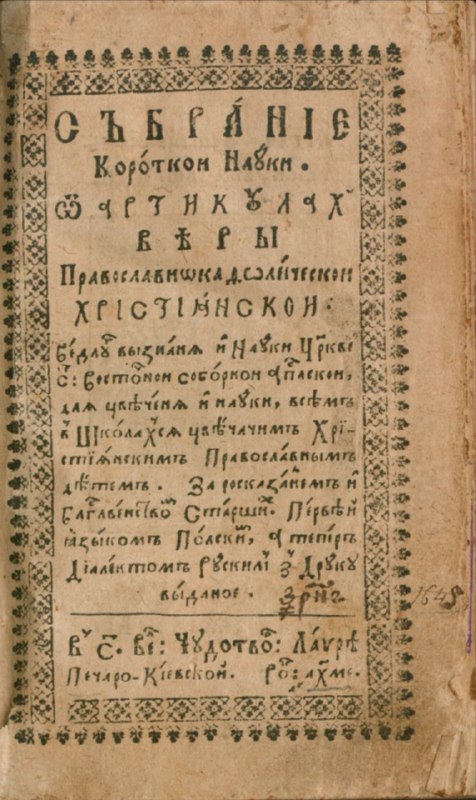 СЪБРА́НІЕ
Коро́ткои Нау́ки.
Ѿ АРТИКУЛАХ
ВѢРЫ
Православнѡкаѳоли́ческои
ХРІСТІѦ́НСКОЙ:
Ведлуⷢ҇ вызнаня и҆ Науки Цр҃кве
С: Всхо́днои соборнои Ап҇лскои,
для цвѣче́ня и҆ науки, всѣмъ
в Шко́лаⷯся цвѣча́чимъ Хрї-
стїя́нскимъ Правосла́внымъ
дѣтемъ. За росказа́немъ и҆
Бл҃гⷭ҇ве́нствоⷨ Ста́ршиⷯ. Пе́рвѣй
ꙗзы́комъ По́лскиⷨ, а тепе́ръ
Дїале́ктомъ Рускиⷨ зⸯ Друку
вы́даное.
1645
Вⸯ С҃. Вел: Чудотво: Ла́врѣ
Печаро-Кі́евской. Роⷦ: ахме.